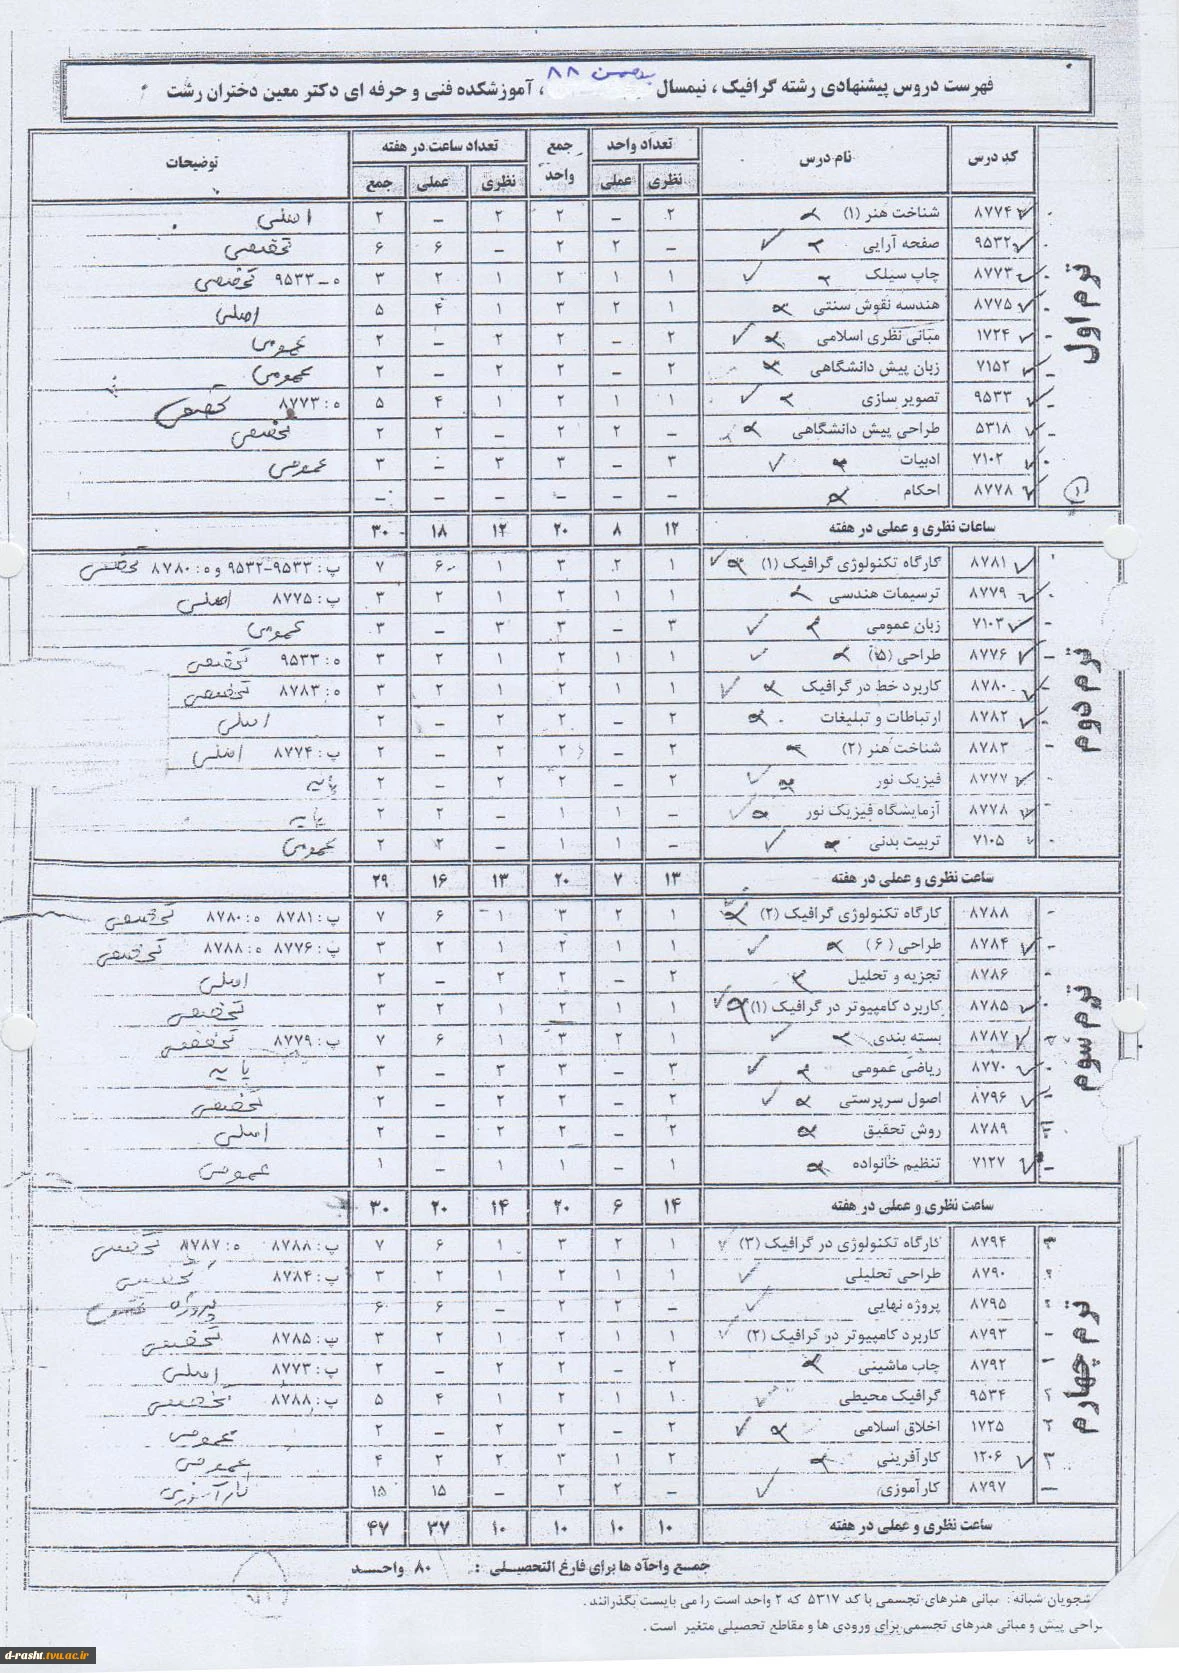 فهرست دروس پیشنهادی رشته گرافیک ، نیمسال بهمن ۸۸ ، آموزشکده فنی و حرفه ای دکتر معین دختران رشت
کد درس نام درس تعداد واحد جمع واحد تعداد ساعت در هفته توضیحات
نظری عملی نظری عملی جمع
ترم اول
۸۷۷۴ شناخت هنر (۱) ۲ – ۲ ۲ – ۲ اصلی
۹۵۳۲ صفحه آرایی – ۲ ۲ – ۶ ۶ تخصصی
۸۷۷۳ چاپ سیلک ۱ ۱ ۲ ۱ ۲ ۳ ه – ۹۵۳۳ تخصصی
۸۷۷۵ هندسه نقوش سنتی ۱ ۲ ۳ ۱ ۴ ۵ اصلی
۱۷۲۴ مبانی نظری اسلامی ۲ – ۲ ۲ – ۲ عمومی
۷۱۵۲ زبان پیش دانشگاهی ۲ – ۲ ۲ – ۲ عمومی
۹۵۳۳ تصویر سازی ۱ ۱ ۲ ۱ ۴ ۵ ه : ۸۷۷۳ تخصصی
۵۳۱۸ طراحی پیش دانشگاهی – ۲ ۲ – ۲ ۲ تخصصی
۷۱۰۲ ادبیات ۳ – ۳ ۳ – ۳ عمومی
۸۷۷۸ احکام – – – – – –
ساعات نظری و عملی در هفته ۱۲ ۸ ۲۰ ۱۲ ۱۸ ۳۰
ترم دوم
۸۷۸۱ کارگاه تکنولوژی گرافیک (۱) ۱ ۲ ۳ ۱ ۶ ۷ پ : ۹۵۳۳-۹۵۳۲ و ه : ۸۷۸۰ تخصصی
۸۷۷۹ ترسیمات هندسی ۱ ۱ ۲ ۱ ۲ ۳ پ : ۸۷۷۵ اصلی
۷۱۰۳ زبان عمومی ۳ – ۳ ۳ – ۳ عمومی
۸۷۷۶ طراحی (۵) ۱ ۱ ۲ ۱ ۲ ۳ ه : ۹۵۳۳ تخصصی
۸۷۸۰ کاربرد خط در گرافیک ۱ ۱ ۲ ۱ ۲ ۳ ه : ۸۷۸۳ تخصصی
۸۷۸۲ ارتباطات و تبلیغات ۲ – ۲ ۲ – ۲ اصلی
۸۷۸۳ شناخت هنر (۲) ۲ – ۲ ۲ – ۲ پ : ۸۷۷۴ اصلی
۸۷۷۷ فیزیک نور ۲ – ۲ ۲ – ۲ پایه
۸۷۷۸ آزمایشگاه فیزیک نور – ۱ ۱ – ۲ ۲ پایه
۷۱۰۵ تربیت بدنی – ۱ ۱ – ۲ ۲ عمومی
ساعت نظری و عملی در هفته ۱۳ ۷ ۲۰ ۱۳ ۱۶ ۲۹
ترم سوم
۸۷۸۸ کارگاه تکنولوژی گرافیک (۲) ۱ ۲ ۳ ۱ ۶ ۷ پ : ۸۷۸۱ ه : ۸۷۸۰ تخصصی
۸۷۸۴ طراحی (۶) ۱ ۱ ۲ ۱ ۲ ۳ پ : ۸۷۷۶ ه : ۸۷۸۸ تخصصی
۸۷۸۶ تجزیه و تحلیل ۲ – ۲ ۲ – ۲ اصلی
۸۷۸۵ کاربرد کامپیوتر در گرافیک (۱) ۱ ۱ ۲ ۱ ۲ ۳ تخصصی
۸۷۸۷ بسته بندی ۱ ۲ ۳ ۱ ۶ ۷ پ : ۸۷۷۹ تخصصی
۸۷۷۰ ریاضی عمومی ۳ – ۳ ۳ – ۳ پایه
۸۷۹۶ اصول سرپرستی ۲ – ۲ ۲ – ۲ تخصصی
۸۷۸۹ روش تحقیق ۲ – ۲ ۲ – ۲ اصلی
۷۱۲۷ تنظیم خانواده ۱ – ۱ ۱ – ۱ عمومی
ساعت نظری و عملی در هفته ۱۴ ۶ ۲۰ ۱۴ ۲۰ ۳۰
ترم چهارم
۸۷۹۴ کارگاه تکنولوژی در گرافیک (۳) ۱ ۲ ۳ ۱ ۶ ۷ پ : ۸۷۸۸ ه : ۸۷۸۷ تخصصی
۸۷۹۰ طراحی تحلیلی ۱ ۱ ۲ ۱ ۲ ۳ پ : ۸۷۸۴ تخصصی
۸۷۹۵ پروژه نهایی – ۲ ۲ – ۶ ۶ پروژه
۸۷۹۳ کاربرد کامپیوتر در گرافیک (۲) ۱ ۱ ۲ ۱ ۲ ۳ پ : ۸۷۸۵ تخصصی
۸۷۹۲ چاپ ماشینی ۲ – ۲ ۲ – ۲ پ : ۸۷۷۳ اصلی
۹۵۳۴ گرافیک محیطی ۱ ۱ ۲ ۱ ۴ ۵ پ : ۸۷۸۸ تخصصی
۱۷۲۵ اخلاق اسلامی ۲ – ۲ ۲ – ۲ عمومی
۱۲۰۶ کارآفرینی ۲ ۱ ۳ ۲ ۲ ۴ عمومی
۸۷۹۷ کارآموزی – ۲ ۲ – ۱۵ ۱۵ کارآموزی
ساعت نظری و عملی در هفته ۱۰ ۱۰ ۱۰ ۱۰ ۳۷ ۴۷
جمع واحد ها برای فارغ التحصیلی : ۸۰ واحد
شجویان شبانه : مبانی هنرهای تجسمی با کد ۵۳۱۷ که ۲ واحد است را می بایست بگذرانند .
طراحی پیش و مبانی هنرهای تجسمی برای ورودی ها و مقاطع تحصیلی متغیر است .
d-rasht.tvu.ac.ir